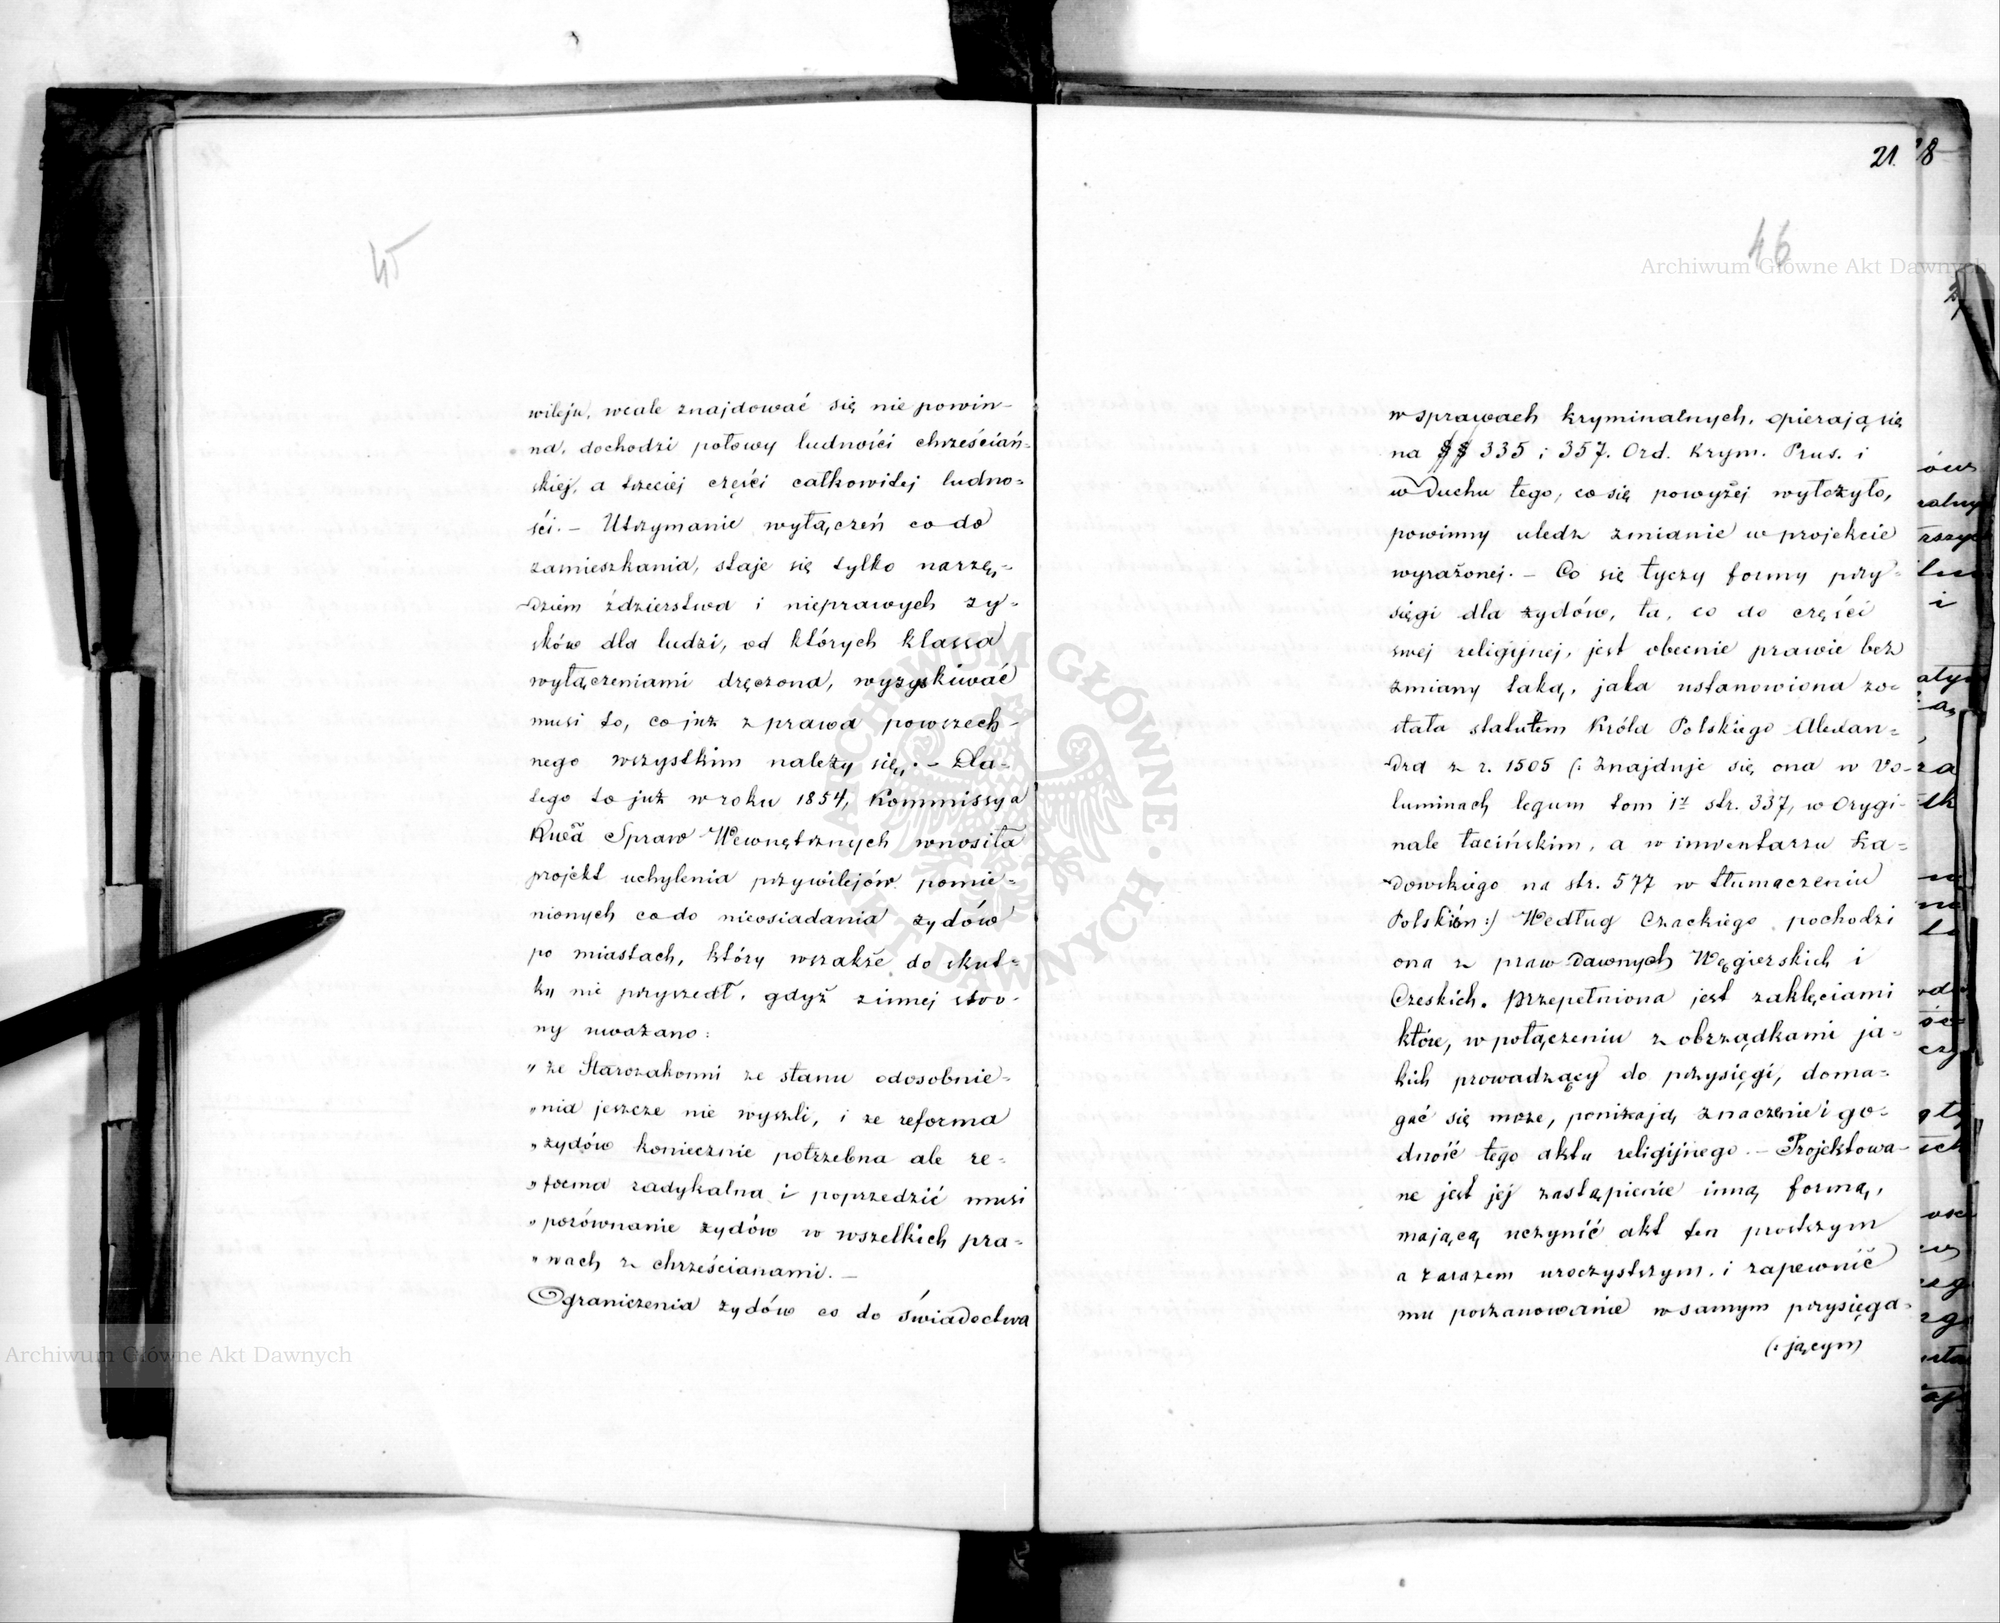 45
wileju, wcale znajdować się nie powin-
na, dochodzi połowy ludności chrześciań-
skiej, a trzeciej części całkowitej ludno-
ści. - Utrzymanie wyłączeń co do
zamieszkania, staje się tylko narzę-
dziem ździerstwa i nieprawych zy-
sków dla ludzi, od których klassa
wyłączeniami dręczona, wyzyskiwać
musi to, co już z prawa powszech-
nego wszystkim należy się. - Dla-
tego to już w roku 1854, Kommissya
Rwa Spraw Wewnętrznych wnosiła
projekt uchylenia przywilejów pomie-
nionych co do nieosiadania żydów
po miastach, który wszakże do skut-
ku nie przyszedł, gdyż z innej stro-
ny uważano:
„że Starozakonni ze stanu odosobnie-
„nia jeszcze nie wyszli, i że reforma
„żydów koniecznie potrzebna ale re-
„forma radykalna i poprzedzić musi
„porównanie żydów w wszelkich pra-
„wach z chrześcianami. -
Ograniczenia żydów co do świadectwa
21. 18
46
w sprawach kryminalnych, opierają się
na §§ 335 i 357. Ord. Krym. Prus. i
w duchu tego, co się powyżej wyłożyło,
powinny uledz zmianie w projekcie
wyrażonej. - Co się tyczy formy przy-
sięgi dla żydów, ta, co do części
swej religijnej, jest obecnie prawie bez
zmiany taką, jaka ustanowiona zo-
stała statutem Króla Polskiego Alexan-
dra z r. 1505 (: znajduje się ona w Vo-
luminach legum tom 1z str. 337, w Orygi-
nale łacińskim, a w inwentarzu Ła-
dowskiego na str. 577 w tłumaczeniu
Polskiém :) Według Czackiego pochodzi
ona z praw dawnych Węgierskich i
Czeskich. Przepełniona jest zaklęciami
które, w połączeniu z obrządkami ja-
kich prowadzący do przysięgi, doma-
gać się może, poniżają znaczenie i go-
dność tego aktu religijnego. - Projektowa-
ne jest jej zastąpienie inną formą,
mającą uczynić akt ten prostszym
a zarazem uroczystszym, i zapewnić
mu poszanowanie w samym przysięga-
(: jącym)
Archiwum Główne Akt Dawnych
Archiwum Główne Akt Dawnych
ARCHIWUM GŁÓWNE · AKT DAWNYCH ·